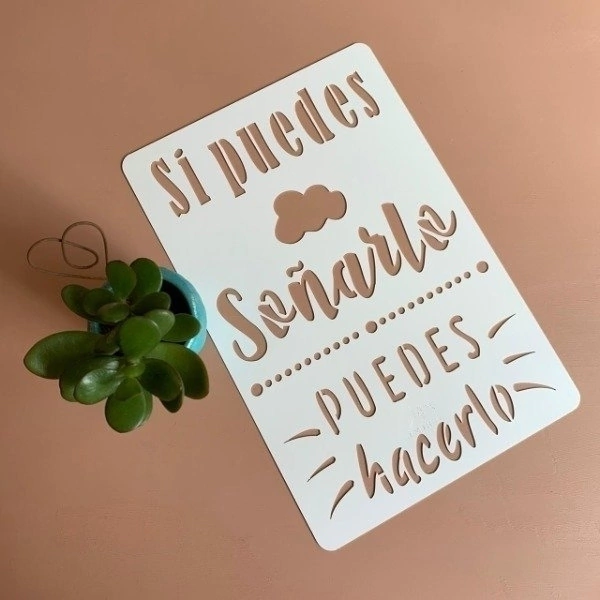 Si puedes
Soñarlo
PUEDES
hacerlo